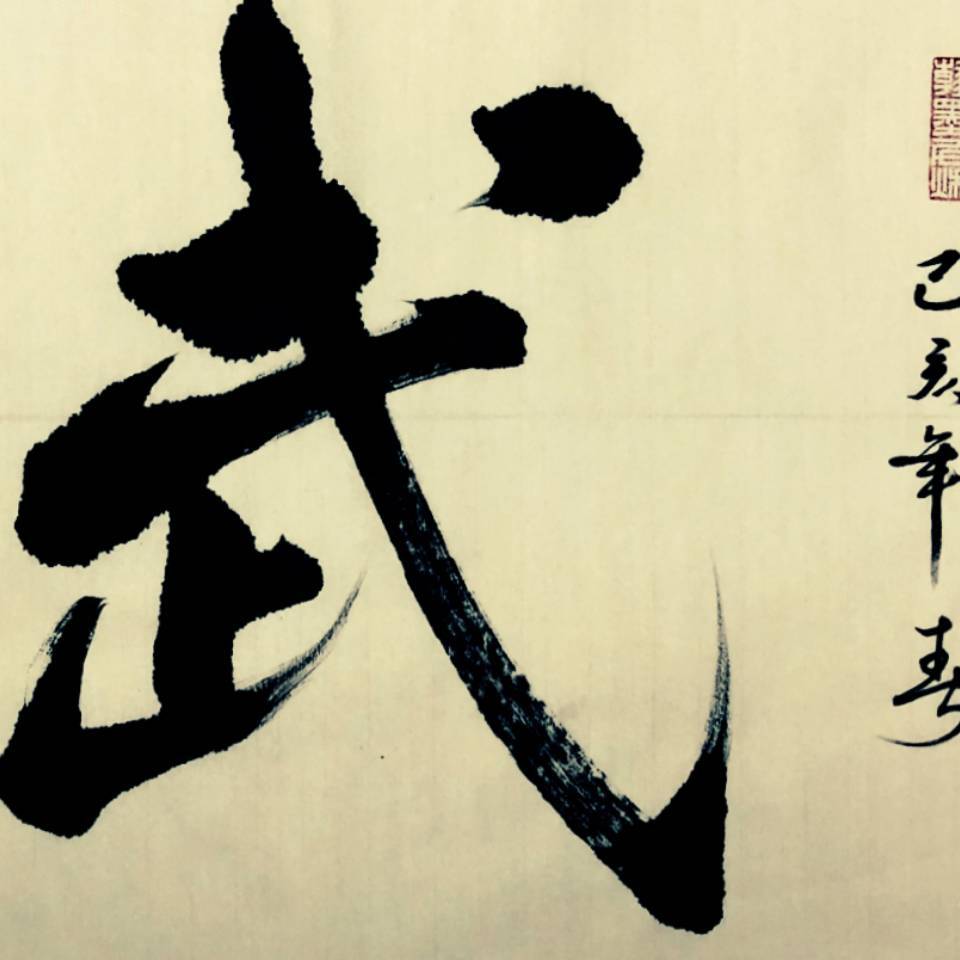 己亥年春
武